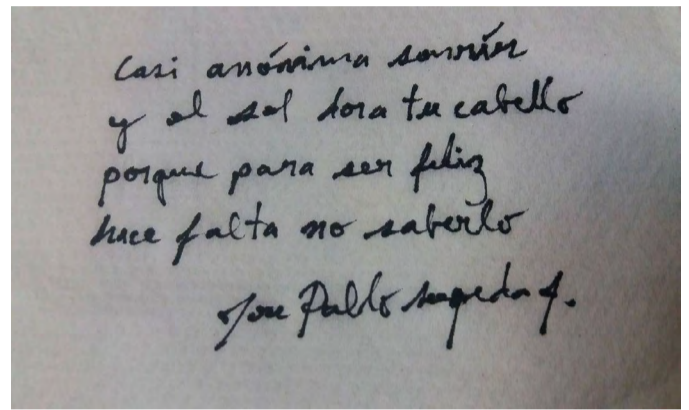 Casi anónima sonríes
y el sol dora tu cabello
porque para ser feliz
hace falta no saberlo
Jose Pablo